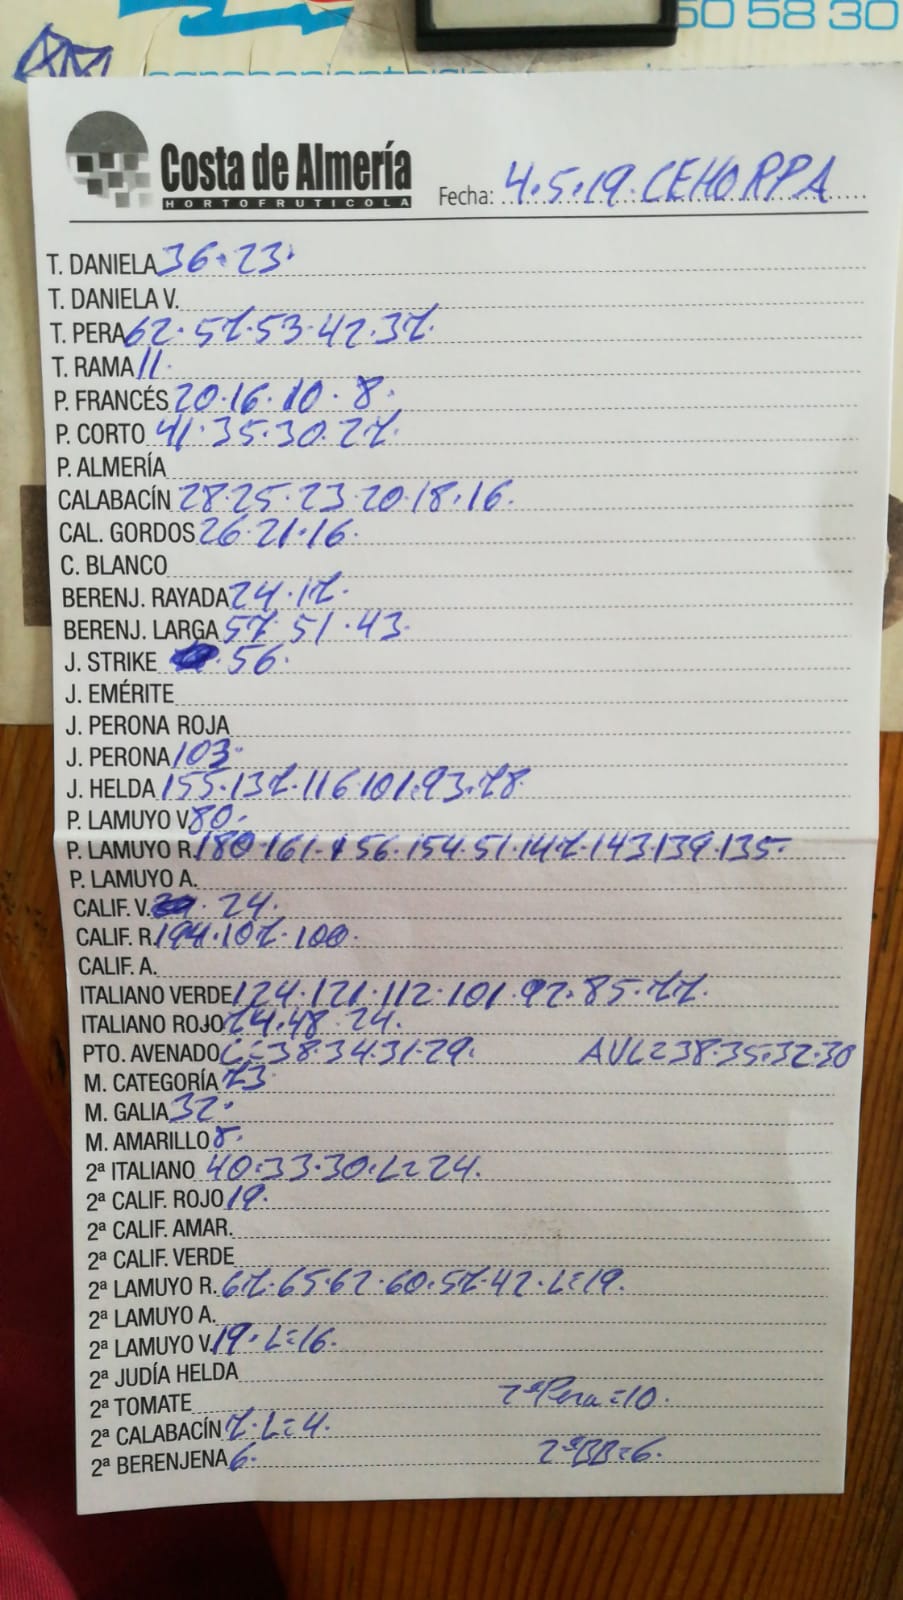 50 58 30
Costa de Almería
HORTOFRUTICOLA
Fecha: 4.5.19. CEHORPA
T. DANIELA 36.23.
T. DANIELA V.
T. PERA 62.57.53.42.37.
T. RAMA 11.
P. FRANCÉS 20.16.10.8.
P. CORTO 41.35.30.27.
P. ALMERÍA
CALABACÍN 28.25.23.20.18.16.
CAL. GORDOS 26.21.16.
C. BLANCO
BERENJ. RAYADA 24.17.
BERENJ. LARGA 57.51.43.
J. STRIKE 56.
J. EMÉRITE
J. PERONA ROJA
J. PERONA 103.
J. HELDA 155.137.116.101.93.78.
P. LAMUYO V. 80.
P. LAMUYO R. 180.161.156.154.51.147.143.139.135.
P. LAMUYO A.
CALIF. V. 24.
CALIF. R. 194.107.100.
CALIF. A.
ITALIANO VERDE 124.121.112.101.92.85.77.
ITALIANO ROJO 74.48.24.
PTO. AVENADO C=38.34.31.29. AVL=38.35.32.30
M. CATEGORÍA 73
M. GALIA 32.
M. AMARILLO 8.
2ª ITALIANO 40.33.30.L=24.
2ª CALIF. ROJO 19.
2ª CALIF. AMAR.
2ª CALIF. VERDE
2ª LAMUYO R. 67.65.62.60.57.42.L=19.
2ª LAMUYO A.
2ª LAMUYO V. 19.L=16.
2ª JUDÍA HELDA
2ª TOMATE 2ªPera=10.
2ª CALABACÍN 7.L=4.
2ª BERENJENA 6. 2ªBB=6.